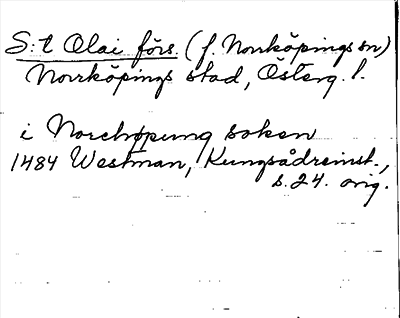 S:t Olai förs. (f. Norrköpings sn)
Norrköpings stad, Österg. l.
i Norchøpung soken
1484 Westman, Kungsådreinst.,
s. 24. orig.